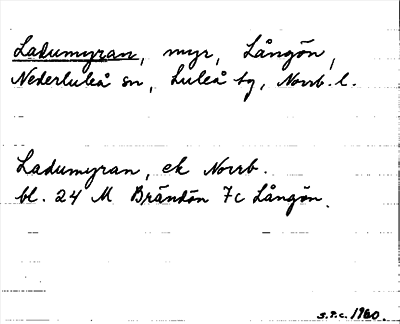 Ladumyran, myr, Långön,
Nederluleå sn, Luleå tg, Norrb. l.
Ladumyran, ek Norrb.
bl. 24 M Brändön 7c Långön.
S.P.C. 1960.